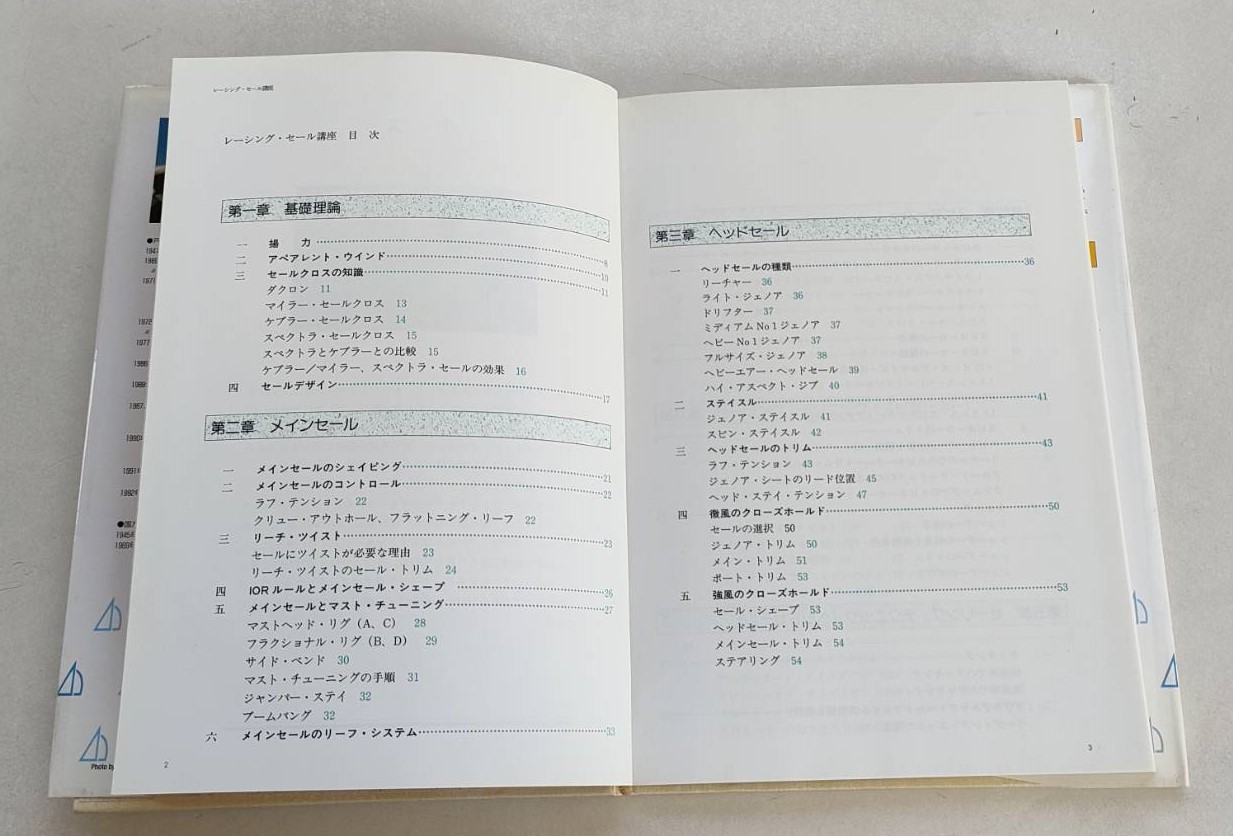 レーシング・セール講座
レーシング・セール講座 目 次
第一章 基礎理論
一 揚 力 8
二 アペアレント・ウインド 10
三 セールクロスの知識 11
ダクロン 11
マイラー・セールクロス 13
ケブラー・セールクロス 14
スペクトラ・セールクロス 15
スペクトラとケブラーとの比較 15
ケブラー/マイラー、スペクトラ・セールの効果 16
四 セールデザイン 17
第二章 メインセール
一 メインセールのシェイピング 21
二 メインセールのコントロール 22
ラフ・テンション 22
クリュー・アウトホール、フラットニング・リーフ 22
三 リーチ・ツイスト 23
セールにツイストが必要な理由 23
リーチ・ツイストのセール・トリム 24
四 IORルールとメインセール・シェープ 26
五 メインセールとマスト・チューニング 27
マストヘッド・リグ(A、C) 28
フラクショナル・リグ(B、D) 29
サイド・ベンド 30
マスト・チューニングの手順 31
ジャンパー・ステイ 32
ブームバング 32
六 メインセールのリーフ・システム 33
2
第三章 ヘッドセール
一 ヘッドセールの種類 36
リーチャー 36
ライト・ジェノア 36
ドリフター 37
ミディアムNo1ジェノア 37
ヘビーNo1ジェノア 37
フルサイズ・ジェノア 38
ヘビーエアー・ヘッドセール 39
ハイ・アスペクト・ジブ 40
二 ステイスル 41
ジェノア・ステイスル 41
スピン・ステイスル 42
三 ヘッドセールのトリム 43
ラフ・テンション 43
ジェノア・シートのリード位置 45
ヘッド・ステイ・テンション 47
四 微風のクローズホールド 50
セールの選択 50
ジェノア・トリム 50
メイン・トリム 51
ボート・トリム 53
五 強風のクローズホールド 53
セール・シェープ 53
ヘッドセール・トリム 53
メインセール・トリム 54
ステアリング 54
3
Photo by